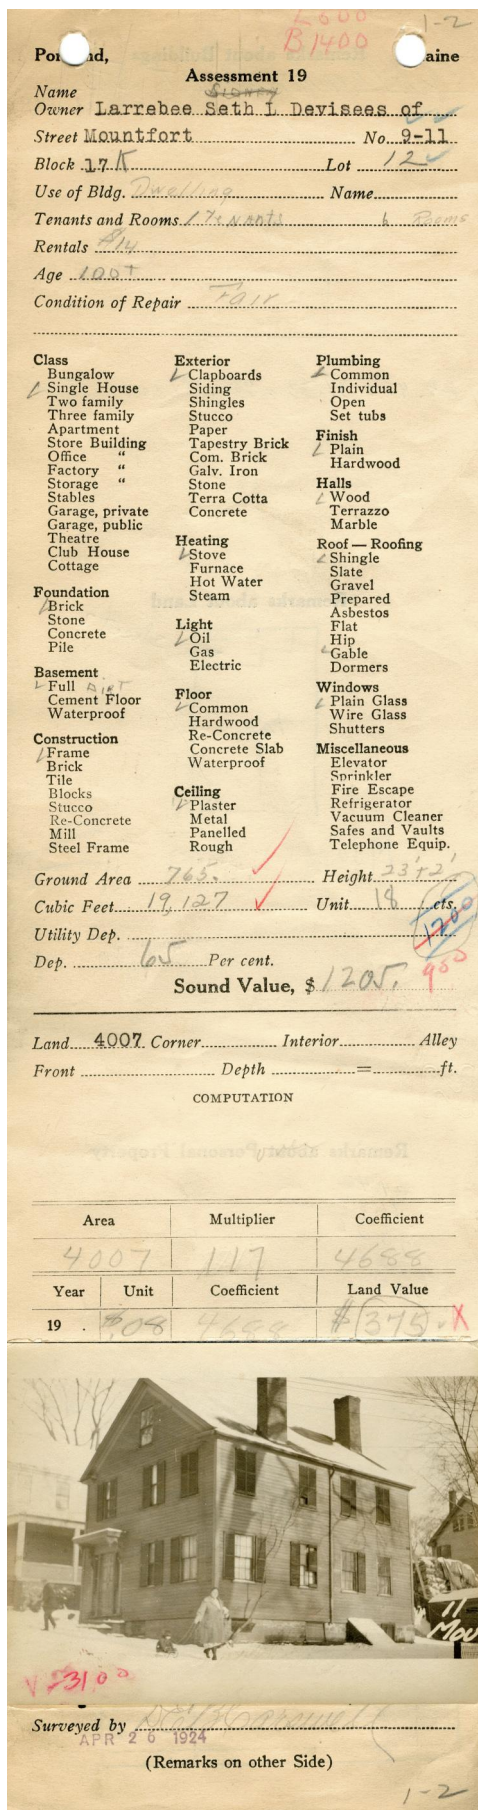 L600
B1400
1-2
Portland, Maine
Assessment 19
Name
Owner Larrebee Seth L Devisees of
Street Mountfort No. 9-11
Block 17 K Lot 12
Use of Bldg. Dwelling Name
Tenants and Rooms 1 Tenants 6 Rooms
Rentals $14
Age 100+
Condition of Repair Fair
Class
Bungalow
Single House
Two family
Three family
Apartment
Store Building
Office "
Factory "
Storage "
Stables
Garage, private
Garage, public
Theatre
Club House
Cottage
Foundation
Brick
Stone
Concrete
Pile
Basement
Full Dirt
Cement Floor
Waterproof
Construction
Frame
Brick
Tile
Blocks
Stucco
Re-Concrete
Mill
Steel Frame
Exterior
Clapboards
Siding
Shingles
Stucco
Paper
Tapestry Brick
Com. Brick
Galv. Iron
Stone
Terra Cotta
Concrete
Heating
Stove
Furnace
Hot Water
Steam
Light
Oil
Gas
Electric
Floor
Common
Hardwood
Re-Concrete
Concrete Slab
Waterproof
Ceiling
Plaster
Metal
Panelled
Rough
Plumbing
Common
Individual
Open
Set tubs
Finish
Plain
Hardwood
Halls
Wood
Terrazzo
Marble
Roof — Roofing
Shingle
Slate
Gravel
Prepared
Asbestos
Flat
Hip
Gable
Dormers
Windows
Plain Glass
Wire Glass
Shutters
Miscellaneous
Elevator
Sprinkler
Fire Escape
Refrigerator
Vacuum Cleaner
Safes and Vaults
Telephone Equip.
Ground Area 765. Height 23'+2'
Cubic Feet 19,127 Unit 18 cts.
Utility Dep. 1200
Dep. 65 Per cent. 900
Sound Value, $ 1205.
Land 4007 Corner Interior Alley
Front Depth = ft.
COMPUTATION
Area Multiplier Coefficient
4007 117 4688
Year Unit Coefficient Land Value
19 . $.08 4688 $ 375. X
11
Mou
3100
Surveyed by
APR 26 1924
(Remarks on other Side)
1-2